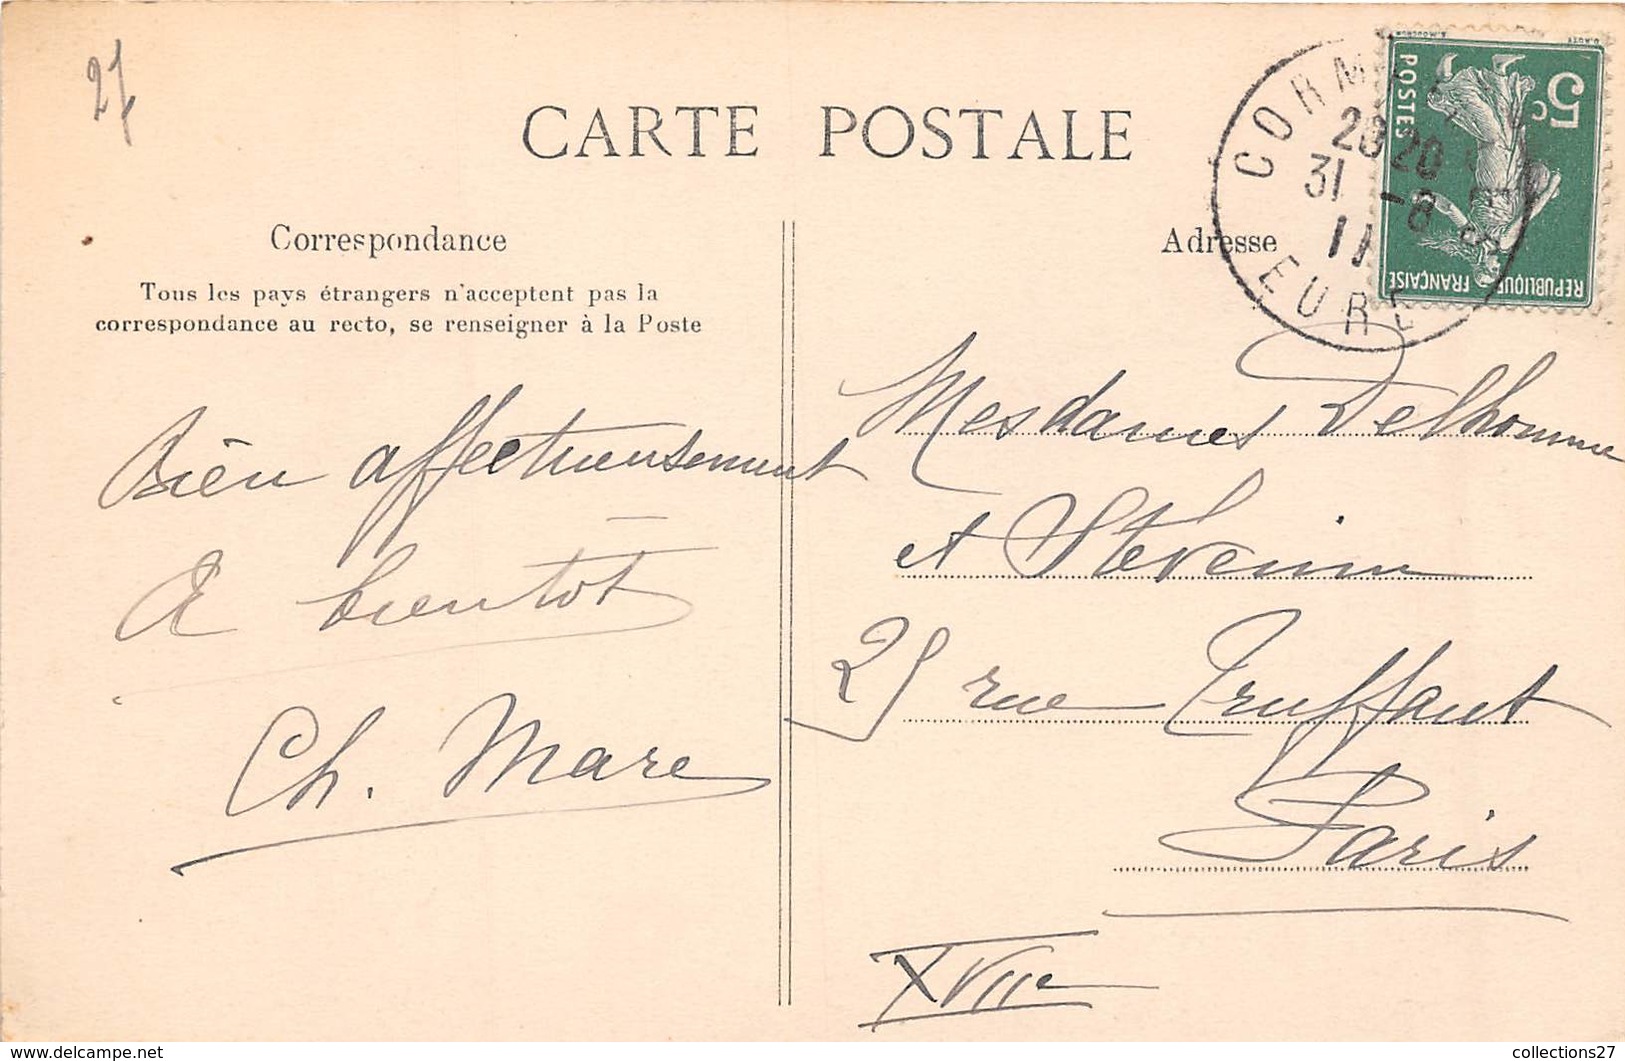 27
CARTE POSTALE
Correspondance
Tous les pays étrangers n'acceptent pas la
correspondance au recto, se renseigner à la Poste
Bien affectueusement
A bientôt
Ch. Mare
Adresse
CORMEILLES
20 20
31 -8
11
EURE
5c
POSTES
REPUBLIQUE FRANÇAISE
Mesdames Delhomme
et Stevenin
25 rue Truffaut
Paris
XVIIe
collections27